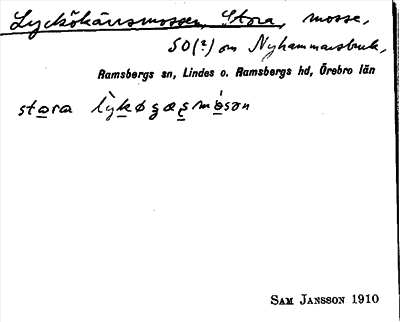 Lyckökärrsmossen, Stora, mosse,
SO(?) om Nyhammarsbruk,
Ramsbergs sn, Lindes o. Ramsbergs hd, Örebro län
stora
Sam Jansson 1910